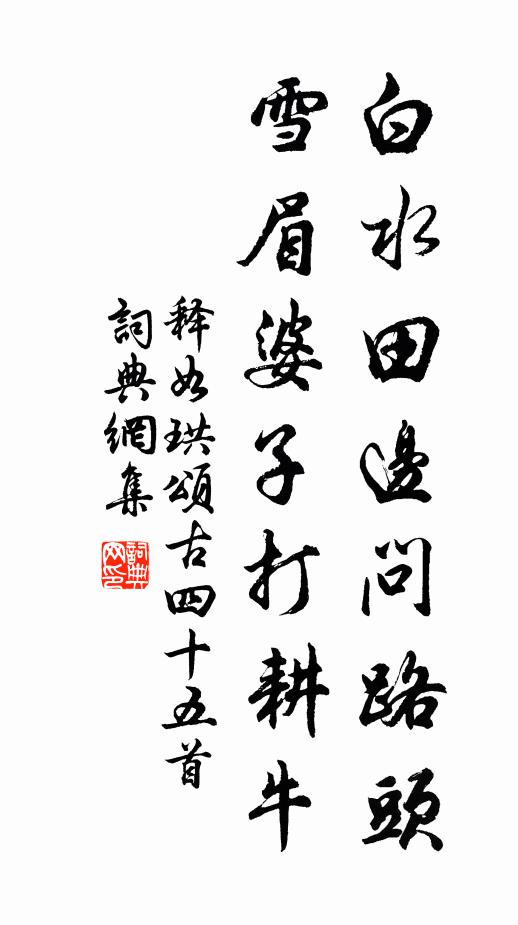 白水田邊問路頭
雪眉婆子打耕牛
释如珙頌古四十五首
詞典網集
詞典网印